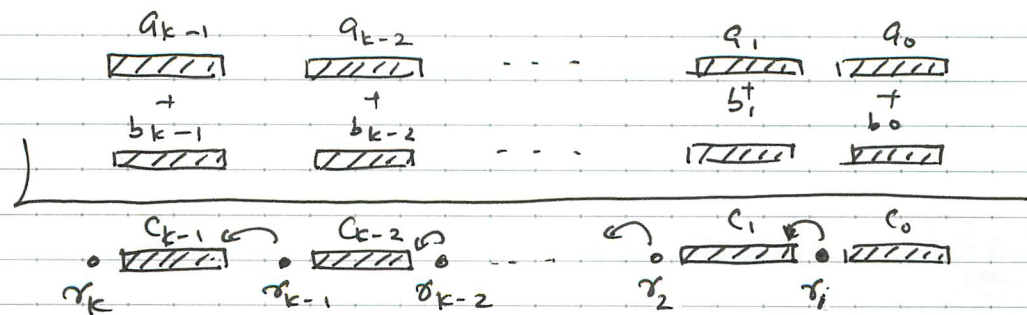 a_{k-1} a_{k-2} - - - a_1 a_0
+ + + +
b_{k-1} b_{k-2} - - - b_1 b_0
c_{k-1} c_{k-2} - - - - c_1 c_0
r_k r_{k-1} r_{k-2} r_2 r_i